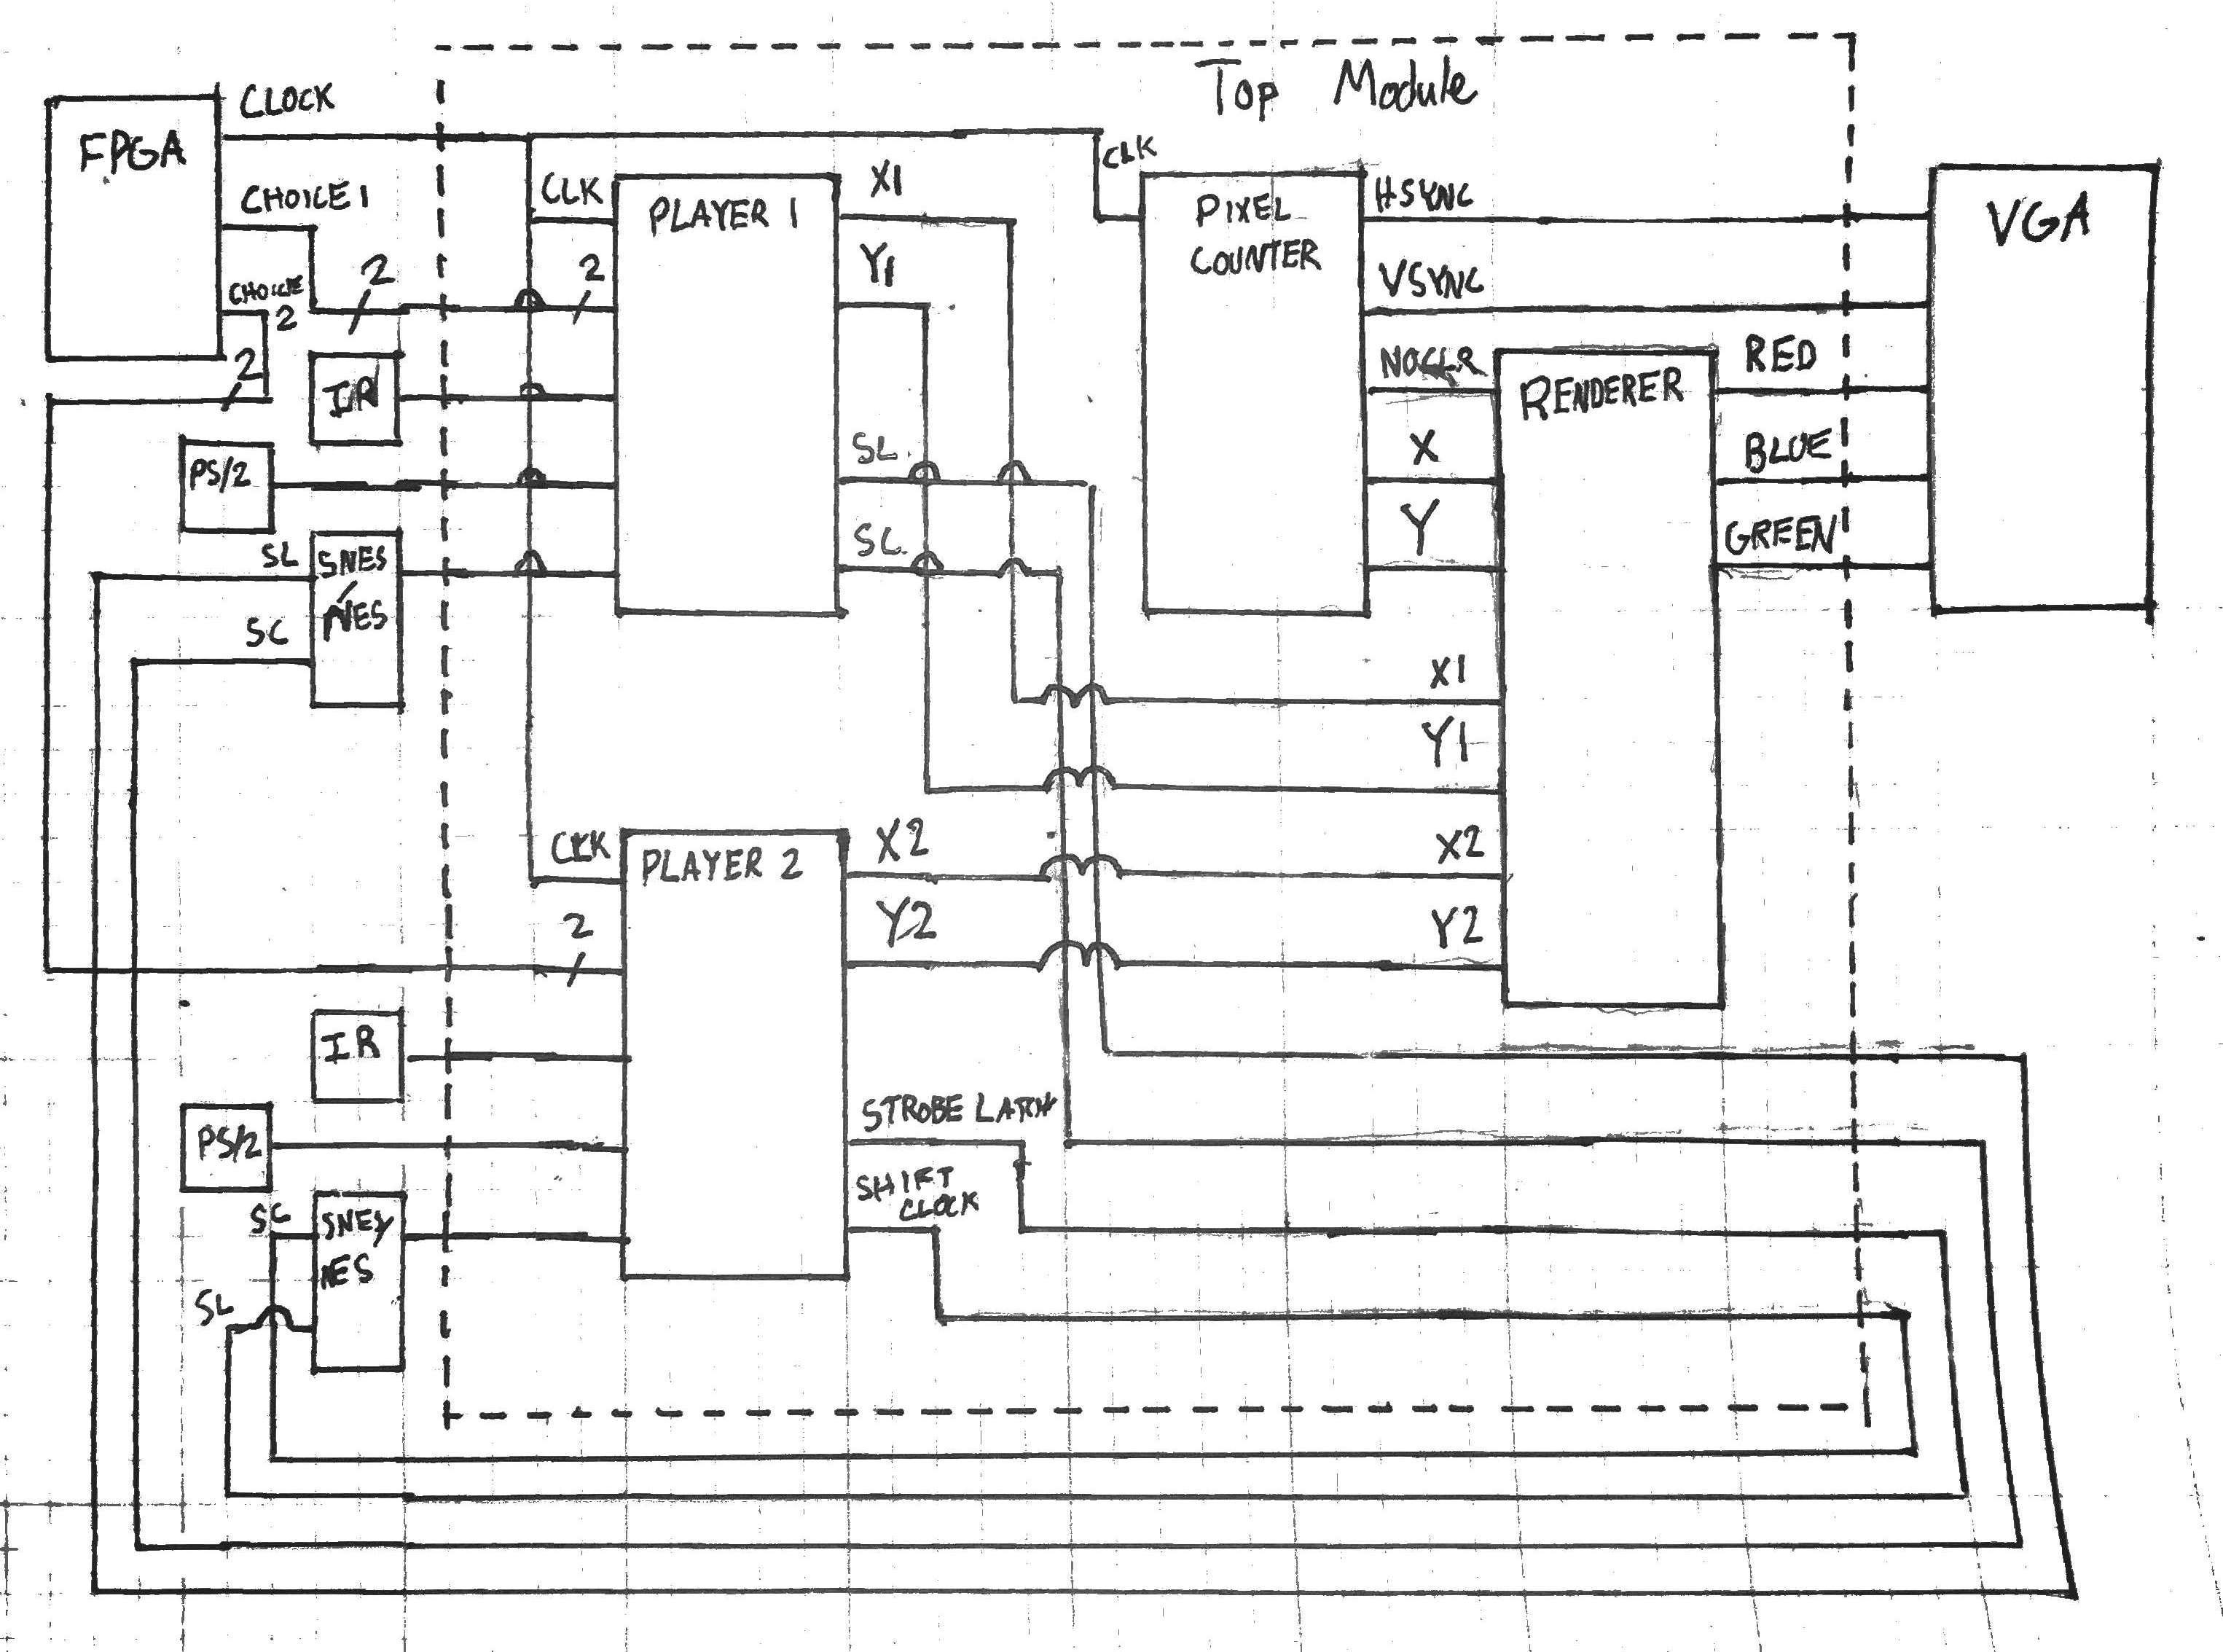 Top Module
FPGA
CLOCK
CHOICE 1
2
CHOICE
2
2
IR
PS/2
SL
SC
SNES
/
NES
CLK
2
PLAYER 1
X1
Y1
SL
SC
CLK
PIXEL
COUNTER
HSYNC
VSYNC
X
Y
RENDERER
RED
BLUE
GREEN
VGA
X1
Y1
X2
Y2
CLK
2
PLAYER 2
X2
Y2
STROBE LATCH
SHIFT
CLOCK
IR
PS/2
SC
SL
SNES/
NES